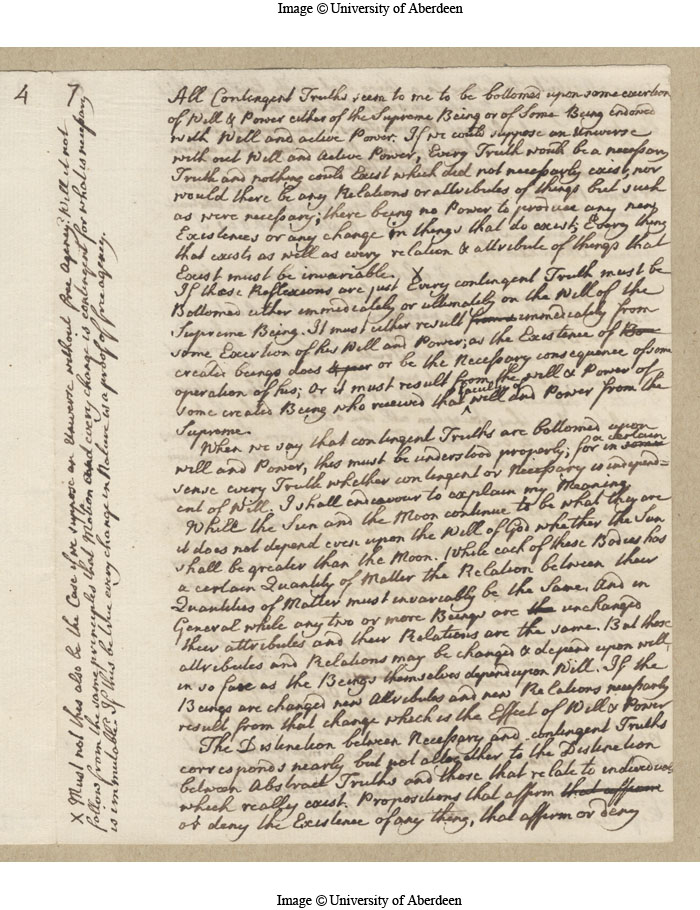 Image © University of Aberdeen
4
All Contingent Truths seem to me to be bottomed upon some exertion
of Will & Power either of the Supreme Being or of Some Being endowed
with Will and active Power. If we could suppose an Universe
without Will and Active Power, Every Truth would be a necessary
Truth and nothing could Exist which did not necessarly exist, nor
would there be any Relations or attributes of things but such
as were necessary; there being no Power to produce any new
Existences or any change in things that do exist; Every thing
that exists as well as every relation & attribute of things that
Exist must be invariable. X
If these Reflexions are just Every contingent Truth must be
Bottomed either immediately or ultimately on the Will of the
Supreme Being. It must either result immediately from
some Exertion of his Will and Power; as the Existence of
created beings does or be the Necessary consequence of some
operation of his; Or it must result from the will & Power of
some created Being who received that faculty of will and Power from the
Supreme.
When we say that contingent Truths are bottomed upon
will and Power, this must be understood properly; for in a certain
sense every Truth whether contingent or Necessary is independ=
ent of Will. I shall endeavour to explain my Meaning
While the Sun and the Moon continue to be what they are
it does not depend even upon the Will of God whether the Sun
shall be greater than the Moon. While each of these Bodies has
a certain Quantity of Matter the Relation between their
Quantities of Matter must invariably be the Same. And in
General while any two or more Beings are unchanged
their attributes and their Relations are the same. But those
attributes and Relations may be changed & depend upon will
in so far as the Beings themselves depend upon Will. If the
Beings are changed new Attributes and new Relations necessarly
result from that change which is the Effect of Will & Power
The Distinction between Necessary and contingent Truths
corresponds nearly but not altogether to the Distinction
between Abstract Truths and those that relate to individuals
which really exist. Propositions that affirm that affirm
or deny the Existence of any thing, that affirm or deny
X Must not this also be the Case if we suppose an Universe without free Agency? Will it not
follow from the same principles that Motion and every change is contingent for what is necessary
is immutable? If this be true every change in Nature is a proof of free agency.
Image © University of Aberdeen